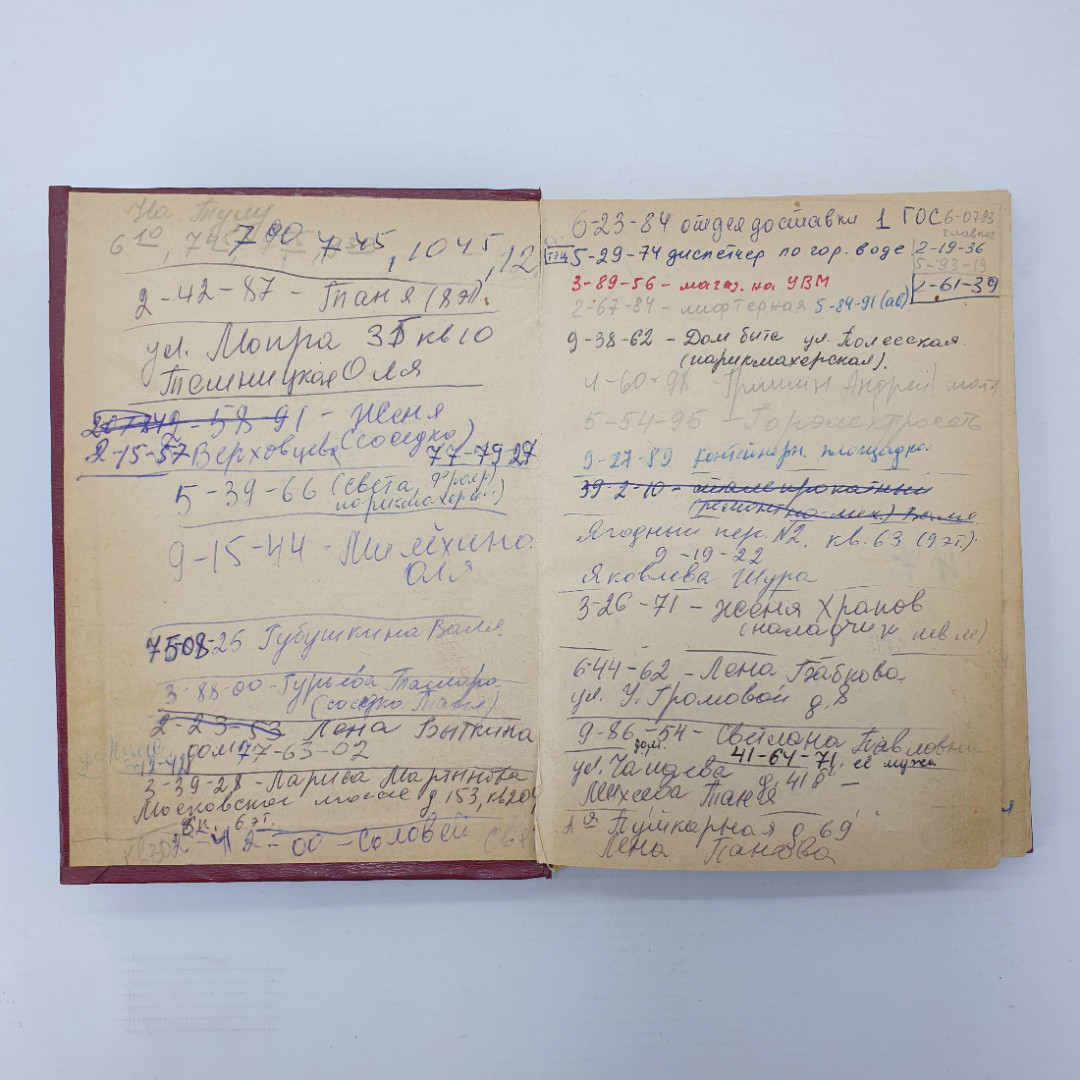 На Тулу
6 10, 7 45, 7 00, 7 45, 10 45, 12
2-42-87 - Таня (8 эт)
ул. Мопра 3Б кв 10
Темницкая Оля
58-91 - Женя
(соседка)
2-15-57 Верховцева 77-79 27
5-39-66 (Света
9-15-44 - Милёхина
Оля
75-08-25 Губушкина Валя
3-88-00 - Гурьева Тамара
(соседка Таня)
2-23-53 Лена Выткина
дом 77-63-02
3-39-28 - Лариса Мартынова
Московское шоссе д. 153, кв 204
6 эт.
2-00 - Соловей
6-23-84 отдел доставки 1 ГОС 6-0793
ТЭЦ 5-29-74 диспетчер по гор. воде 2-19-36
5-93-19
3-89-56 - магаз. на УВМ 2-61-39
2-67-84 - лифтерная 5-84-91 (ав)
9-38-62 - Дом быта ул. Полесская
(парикмахерская).
4-60-98 - Гришин Андрей
5-54-95 - Горэлектросеть
9-27-89 контейнерн. площадка
39-2-10 - сталепрокатный
Ягодный пер. №2, кв. 63 (9 эт.).
9-19-22
Яковлева Шура
3-26-71 - Женя Храпов
(наладчик
6-44-62 - Лена Бабкова
ул. У. Громовой д. 8
9-86-54 - Светлана Павловна
дом. 41-64-71. её мужа
ул. Чапаева д. 41
Михеева Таня
1ая Пушкарная д. 69
Лена Панова